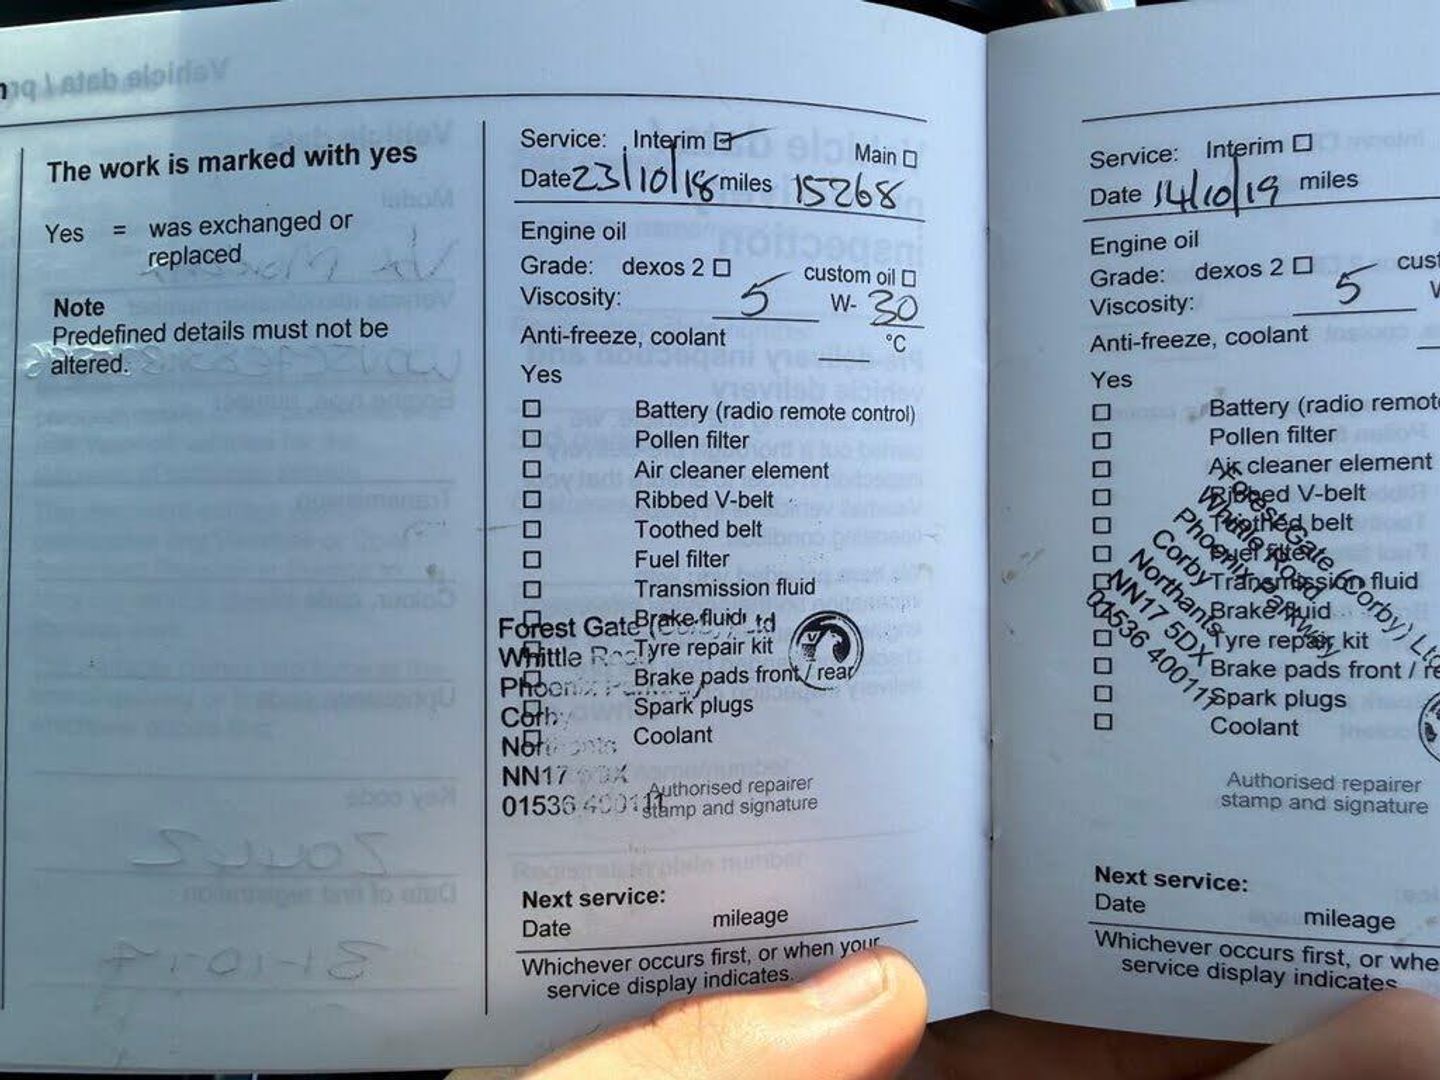 The work is marked with yes
Yes = was exchanged or
replaced
Note
Predefined details must not be
altered.
Service: Interim ☑ Main ☐
Date 23/10/18 miles 15268
Engine oil
Grade: dexos 2 ☐ custom oil ☐
Viscosity: 5 W- 30
Anti-freeze, coolant °C
Yes
☐ Battery (radio remote control)
☐ Pollen filter
☐ Air cleaner element
☐ Ribbed V-belt
☐ Toothed belt
☐ Fuel filter
☐ Transmission fluid
☐ Brake fluid
☐ Tyre repair kit
☐ Brake pads front / rear
☐ Spark plugs
☐ Coolant
Forest Gate (Corby) Ltd
Whittle Road
Phoenix Parkway
Corby
Northants
NN17 5DX
01536 400111
Authorised repairer
stamp and signature
Next service:
Date mileage
Whichever occurs first, or when your
service display indicates.
Service: Interim ☐
Date 14/10/19 miles
Engine oil
Grade: dexos 2 ☐ cust
Viscosity: 5 W
Anti-freeze, coolant
Yes
☐ Battery (radio remot
☐ Pollen filter
☐ Air cleaner element
☐ Ribbed V-belt
☐ Toothed belt
☐ Fuel filter
☐ Transmission fluid
☐ Brake fluid
☐ Tyre repair kit
☐ Brake pads front / re
☐ Spark plugs
☐ Coolant
Forest Gate (Corby) Ltd
Whittle Road
Phoenix Parkway
Corby
Northants
NN17 5DX
01536 400111
Authorised repairer
stamp and signature
Next service:
Date mileage
Whichever occurs first, or whe
service display indicates.